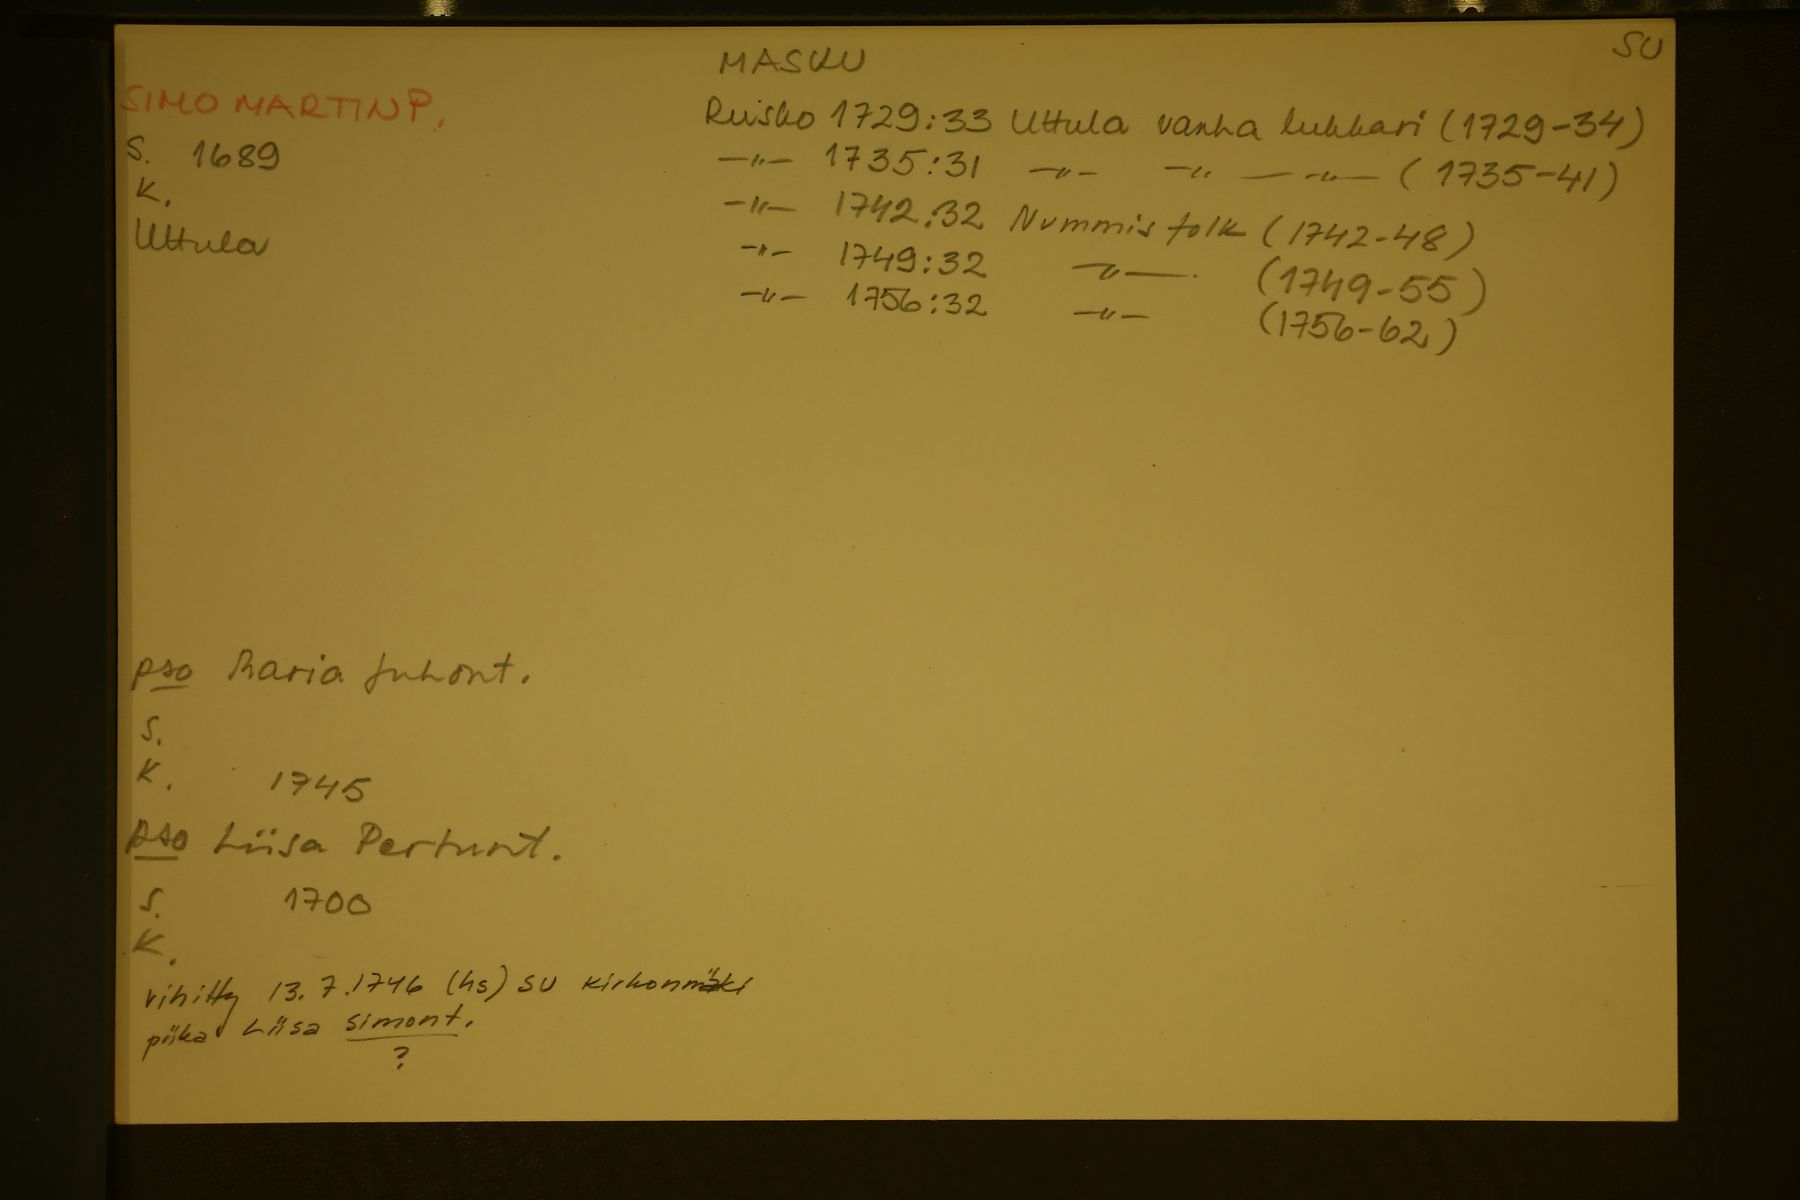 MASKU
SU
SIMO MARTINP.
S. 1689
K.
Uttula
Rusko 1729:33 Uttula vanha lukkari (1729-34)
-"- 1735:31 -"- -"- -"- (1735-41)
-"- 1742:32 Nummis folk (1742-48)
-"- 1749:32 -"- (1749-55)
-"- 1756:32 -"- (1756-62)
pso Maria Juhont.
S.
K. 1745
pso Liisa Pertunt.
S. 1700
K.
vihitty 13.7.1746 (hs) SU kirkonmäki
piika Liisa Simont.
?